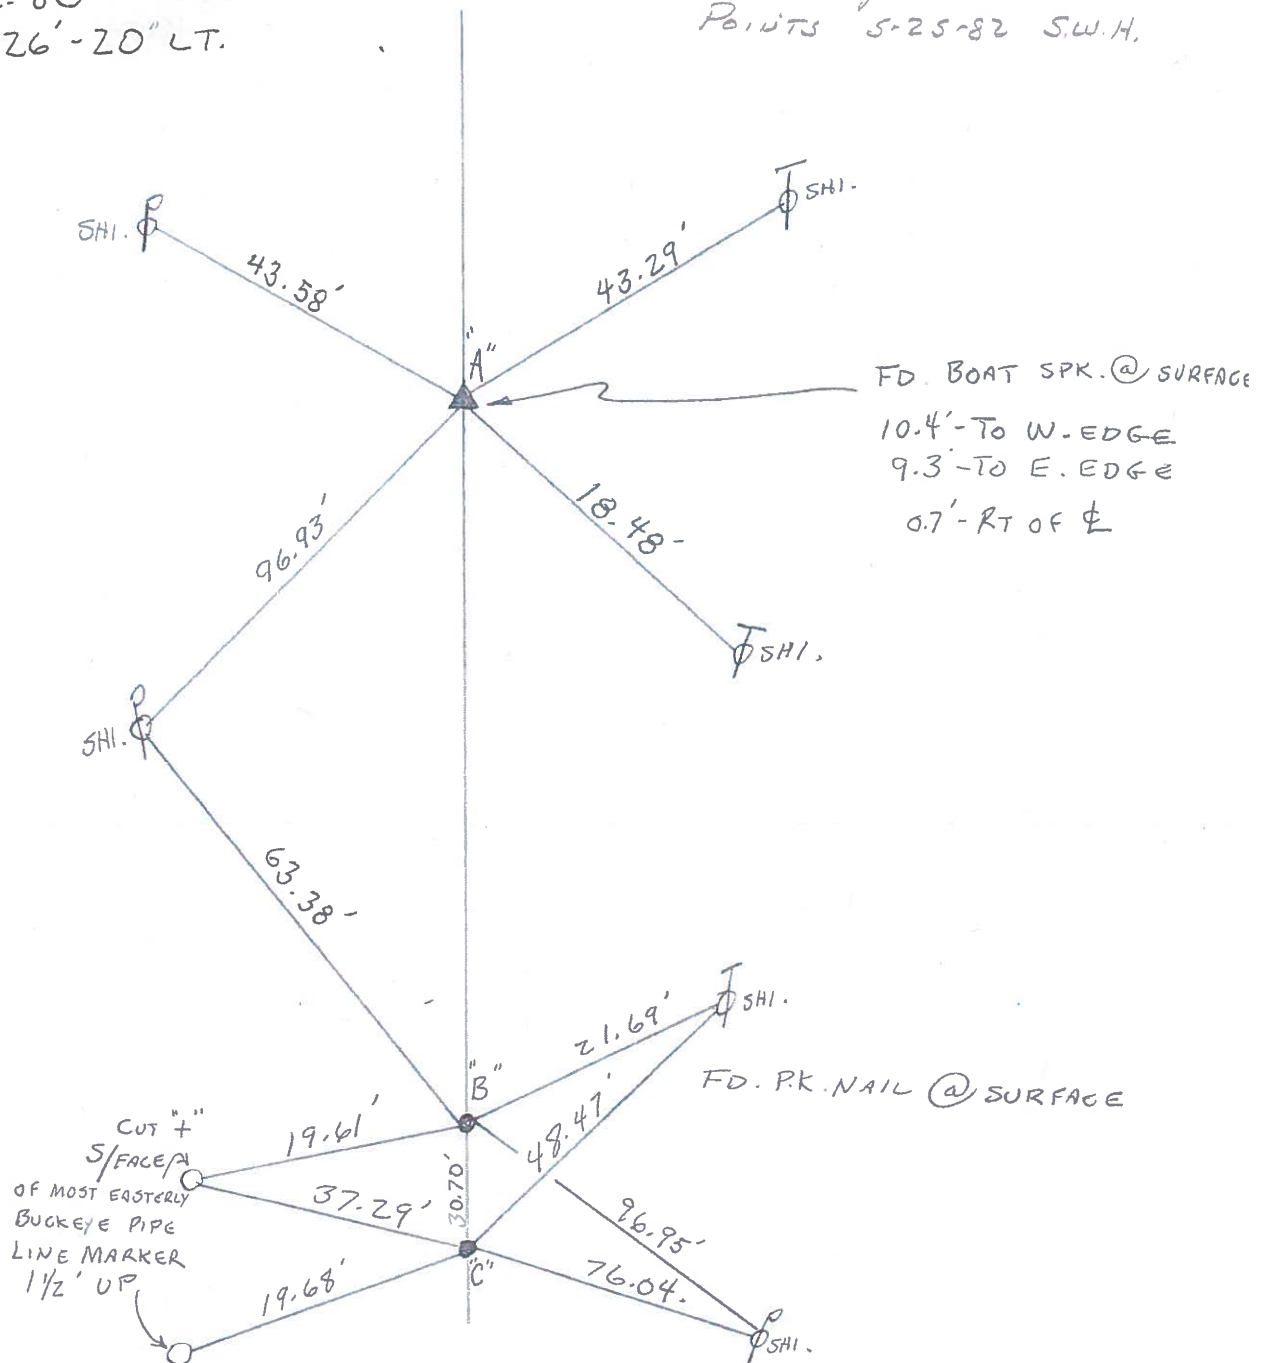 26'-20" LT.
POINTS 5-25-82 S.W.H.
SHI.
SHI.
43.58'
43.29'
"A"
FD. BOAT SPK. @ SURFACE
10.4'-TO W. EDGE
9.3'-TO E. EDGE
0.7'-RT OF ℄
96.93'
18.48-
SHI.
SHI.
63.38-
SHI.
21.69'
"B"
FD. P.K. NAIL @ SURFACE
48.47'
CUT "+"
19.61'
S/FACE
OF MOST EASTERLY
BUCKEYE PIPE
LINE MARKER
1½' UP
37.29'
30.70'
96.95'
"C"
76.04.
19.68'
SHI.